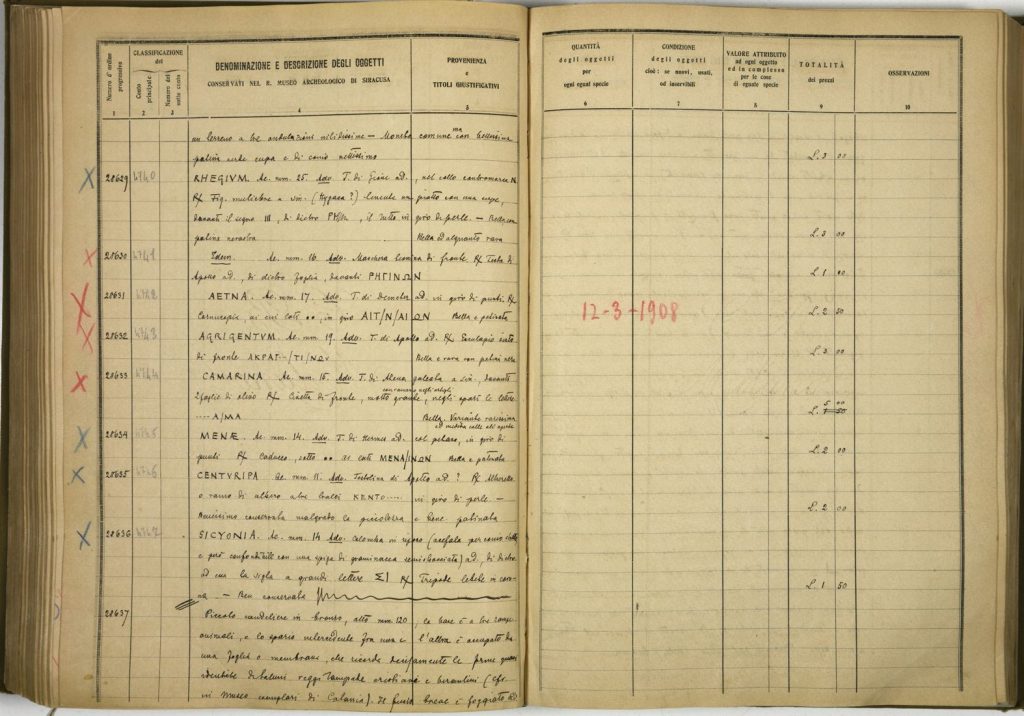 Numero d'ordine progressivo
CLASSIFICAZIONE
del
Conto principale
Numero del sotto conto
DENOMINAZIONE E DESCRIZIONE DEGLI OGGETTI
CONSERVATI NEL R. MUSEO ARCHEOLOGICO DI SIRACUSA
PROVENIENZA
e
TITOLI GIUSTIFICATIVI
1 2 3 4 5
un terreno a tre ondulazioni nitidissime — Moneta comune ma con bellissima
patina verde cupa e di conio nettissimo
28629 4740 RHEGIUM. Ae. mm. 25. Adv. T. di Giove ad. , nel collo contromarca
R/ Fig. muliebre a sin. (Hygaea?)
davanti il segno III, di dietro , il tutto in giro di perle. — Bella con
patina nerastra Bella ed alquanto rara
28630 4741 Idem. Ae. mm. 16. Adv. Maschera leonina di fronte R/ Testa di
Apollo ad., di dietro foglia, davanti ΡΗΓΙΝΩΝ
28631 4742 AETNA. Ae. mm. 17. Adv. T. di Demeter ad. in giro di punti R/
Cornucopia, ai cui lati •• , in giro ΑΙΤ/Ν/ΑΙΩΝ Bella e patinata
28632 4743 AGRIGENTUM. Ae. mm. 19. Adv. T. di Apollo ad. R/ Esculapio
di fronte ΑΚΡΑΓ--/ΤΙ/ΝΩΝ Bella e rara con patina nera
28633 4744 CAMARINA. Ae. mm. 15. Adv. T. di Atena galeata a sin. davanti
2 foglie di olivo R/ Civetta di fronte, con ramarro negli artigli molto grande, negli spazi le lettere
----A/MA Bella. Variante rarissima
28634 4745 MENÆ. Ae. mm. 14. Adv. T. di Hermes ad. col petaso, in giro di
punti R/ Caduceo, sotto •• ai lati ΜΕΝΑ/ΙΝΩΝ Bella e patinata
28635 4746 CENTURIPA. Ae. mm. 11. Adv. Testolina di Apollo ad? R/ Alberello
o ramo di albero a tre ΚΕΝΤΟ---- in giro di perle —
Benissimo conservata malgrado la piccolezza e bene patinata
28636 4747 SICYONIA. Ae. mm. 14 Adv. Colomba in riposo (acefala per
e però confondibile con una spiga di graminacea semischiacciata) ad., di dietro
ad essa la sigla a grandi lettere ΣΙ R/ Tripode lebete in coro-
na — Ben conservata
28637 Piccolo candeliere in bronzo, alto mm. 120, la base è a tre zampe
animali, e lo spazio intercedente fra una e l'altra è occupato da
una foglia o membrana, che ricorda decisamente le forme quasi
identiche di taluni reggi lampade cristiani e bizantini (cfr.
in museo esemplari di Catania). Il fusto breve è foggiato
QUANTITÀ
degli oggetti
per
ogni egual specie
CONDIZIONE
degli oggetti
cioè: se nuovi, usati,
od inservibili
VALORE ATTRIBUITO
ad ogni oggetto
ed in complesso
per le cose
di eguale specie
TOTALITÀ
dei prezzi
OSSERVAZIONI
6 7 8 9 10
L. 3 00
L. 3 00
L. 1 00
12-3-1908 L. 2 50
L. 3 00
5 00
L. 1 50
L. 2 00
L. 2 00
L. 1 50